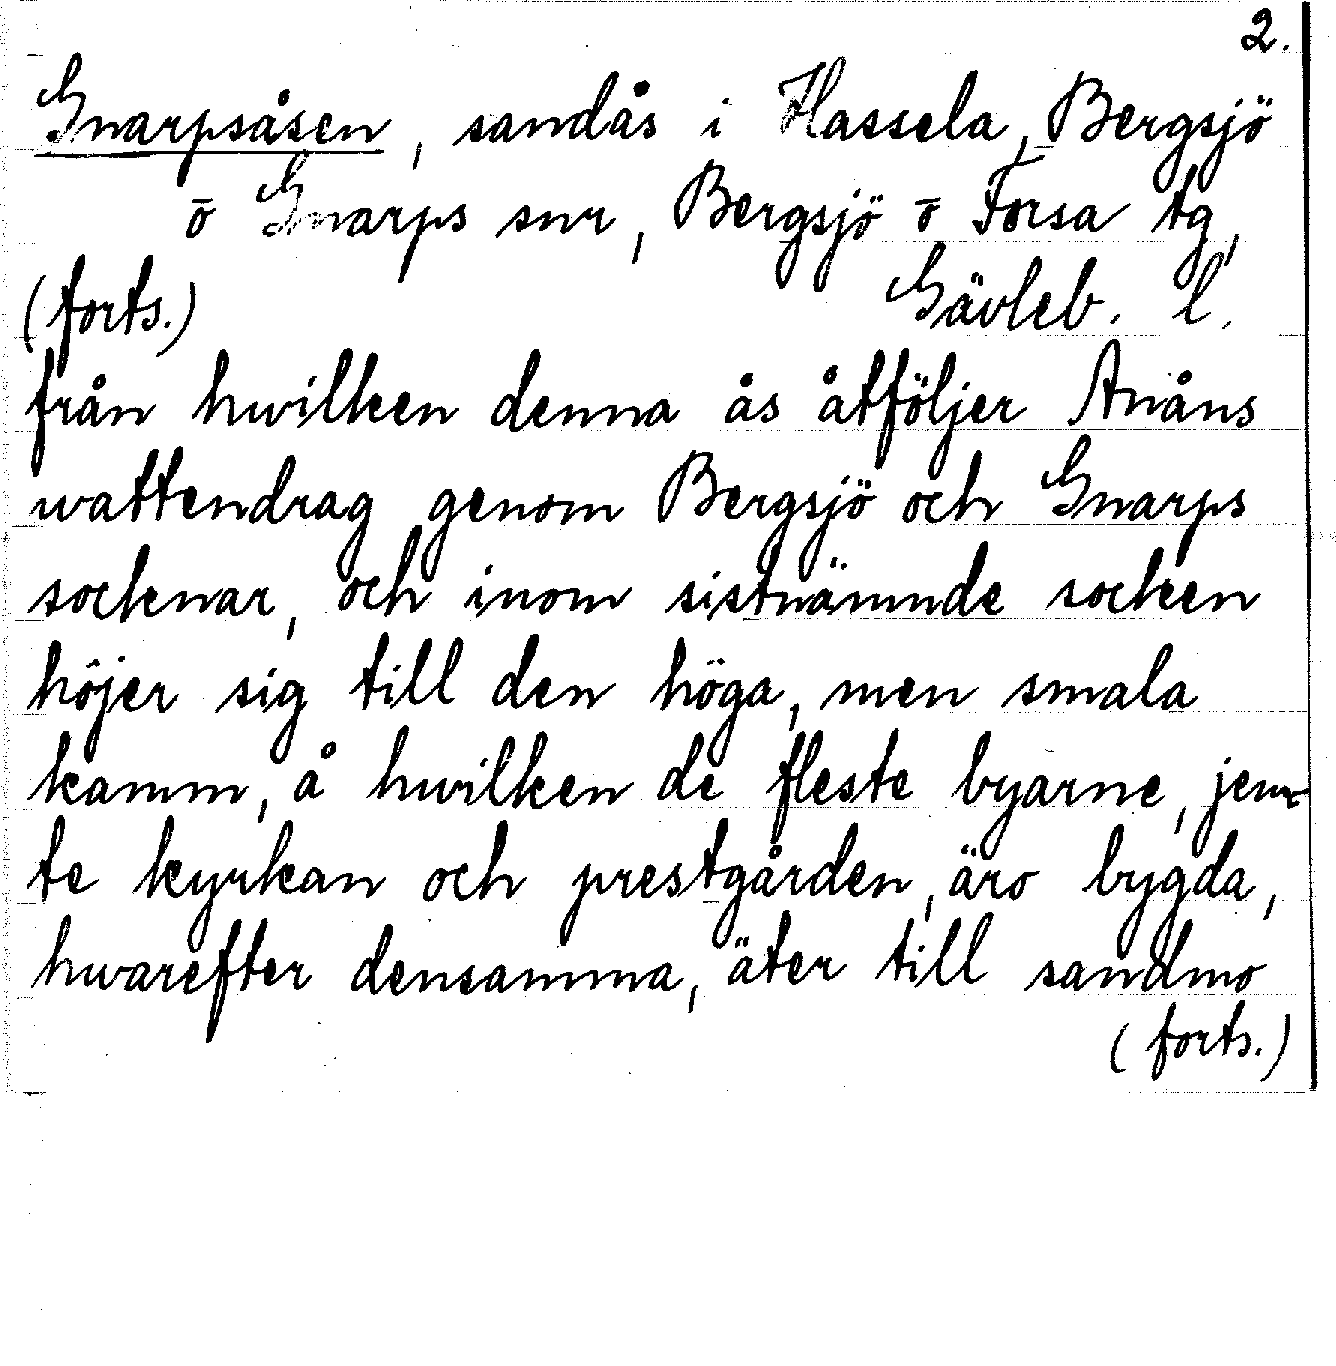 2.
Gnarpsåsen, sandås i Hassela, Bergsjö
ō Gnarps snr, Bergsjö ō Forsa tg,
(forts.) Gävleb. l.
från hwilken denna ås åtföljer Anåns
wattendrag genom Bergsjö och Gnarps
socknar, och inom sistnämnde socken
höjer sig till den höga, men smala
kamm, å hwilken de fleste byarne, jem-
te kyrkan och prestgården, äro bygda,
hwarefter densamma, åter till sandmo
(forts.)